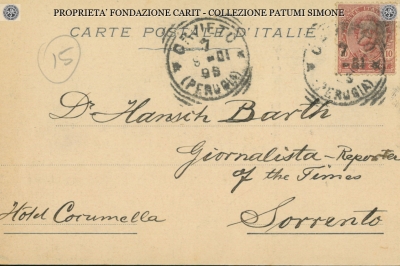 PROPRIETA' FONDAZIONE CARIT - COLLEZIONE PATUMI SIMONE
CARTE POSTALE D'ITALIE
15
ORVIETO
7
8-01
98
(PERUGIA)
7
(PERUGIA)
Dr Hansich Barth
Giornalista - Reporter
of the Times
Hotel Cocumella
Sorrento